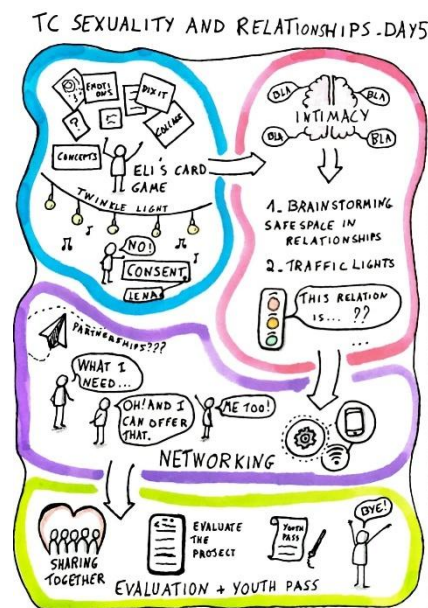 TC SEXUALITY AND RELATIONSHIPS - DAY5
EMOTI
ONS
DIXIT
?
5
COLLAGE
CONCEPTS
ELI'S CARD
GAME
TWINKLE LIGHT
NO!
CONSENT
LENA
BLA
BLA
INTIMACY
BLA
BLA
1. BRAINSTORMING
SAFE SPACE IN
RELATIONSHIPS
2. TRAFFIC LIGHTS
THIS RELATION
IS... ??
...
PARTNERSHIPS???
WHAT I
NEED...
OH! AND I
CAN OFFER
THAT.
ME TOO!
NETWORKING
SHARING
TOGETHER
EVALUATE
THE
PROJECT
YOUTH
PASS
BYE!
EVALUATION + YOUTH PASS